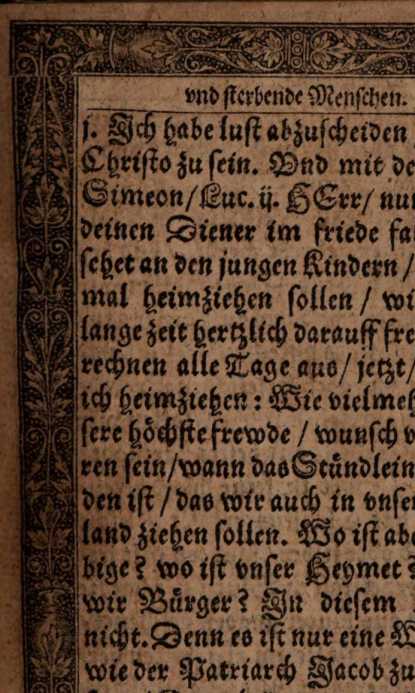 vnd sterbende Menschen.
j. Ich habe lust abzuscheiden
Christo zu sein. Vnd mit de
Simeon/ Luc. ij. HErr/ nun
deinen Diener im friede fa
sehet an den jungen Kindern /
mal heimziehen sollen / wi
lange zeit hertzlich darauff fre
rechnen alle Tage aus/ jetzt/
ich heimziehen: Wie vielmeh
sere höchste frewde / wunsch v
ren sein/wann das Stündlein
den ist / das wir auch in vnser
land ziehen sollen. Wo ist abe
bige? wo ist vnser Heymet?
wir Bürger? In diesem
nicht. Denn es ist nur eine W
wie der Patriarch Jacob zu